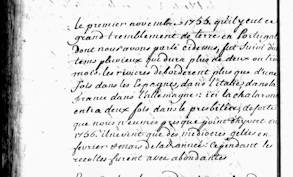 Le premier novembre 1755. qu'il y eut ce
grand tremblement de terre en Portugal
Dont nous avons parlé cidessus, fut suivi d'un
tems pluvieux qui dura plus de deux ou trois
mois. les rivieres deborderent plus d'une
fois dans les Espagnes, dans l'italie, dans la
france dans l'allemagne: ici la chalaronne
entra deux fois dans le presbitère, de sorte
que nous n'eumes presque point d'hyver en
1756. il n'y eut que des mediocres gelées en
fevrier et mars de la d. année: Cependant les
recoltes furent assez abondantes